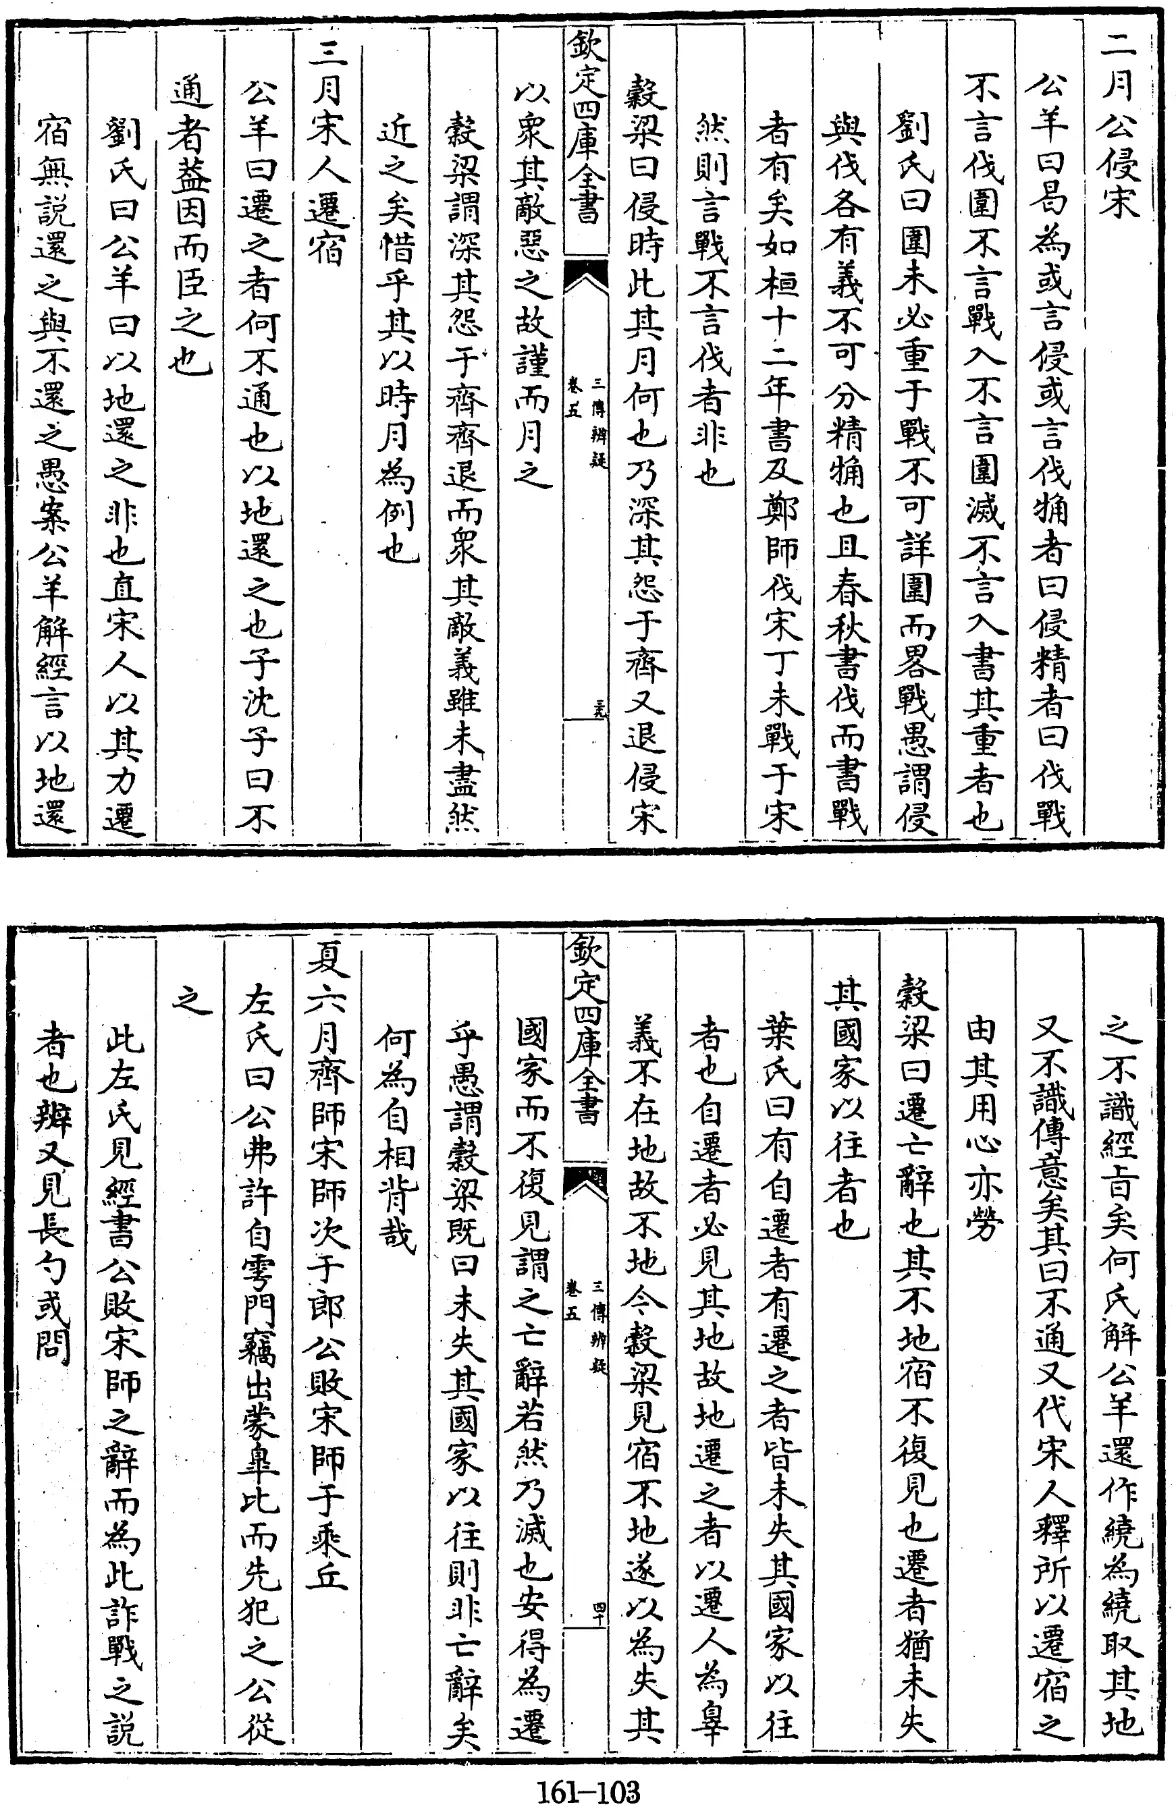 二月公侵宋
公羊曰曷為或言侵或言伐觕者曰侵精者曰伐戰
不言伐圍不言戰入不言圍滅不言入書其重者也
劉氏曰圍未必重于戰不可詳圍而畧戰愚謂侵
與伐各有義不可分精觕也且春秋書伐而書戰
者有矣如桓十二年書及鄭師伐宋丁未戰于宋
然則言戰不言伐者非也
榖梁曰侵時此其月何也乃深其怨于齊又退侵宋
欽定四庫全書
三傳辨疑
卷五
三九
以衆其敵惡之故謹而月之
榖梁謂深其怨于齊齊退而衆其敵義雖未盡然
近之矣惜乎其以時月為例也
三月宋人遷宿
公羊曰遷之者何不通也以地還之也子沈子曰不
通者蓋因而臣之也
劉氏曰公羊曰以地還之非也直宋人以其力遷
宿無説還之與不還之愚案公羊解經言以地還
之不識經㫖矣何氏解公羊還作繞為繞取其地
又不識傳意矣其曰不通又代宋人釋所以遷宿之
由其用心亦勞
榖梁曰遷亡辭也其不地宿不復見也遷者猶未失
其國家以往者也
葉氏曰有自遷者有遷之者皆未失其國家以往
者也自遷者必見其地故地遷之者以遷人為辠
義不在地故不地今榖梁見宿不地遂以為失其
欽定四庫全書
三傳辨疑
卷五
四十
國家而不復見謂之亡辭若然乃滅也安得為遷
乎愚謂榖梁既曰未失其國家以往則非亡辭矣
何為自相背哉
夏六月齊師宋師次于郎公敗宋師于乘丘
左氏曰公弗許自雩門竊出蒙臯比而先犯之公從
之
此左氏見經書公敗宋師之辭而為此詐戰之説
者也辨又見長勺或問
161-103